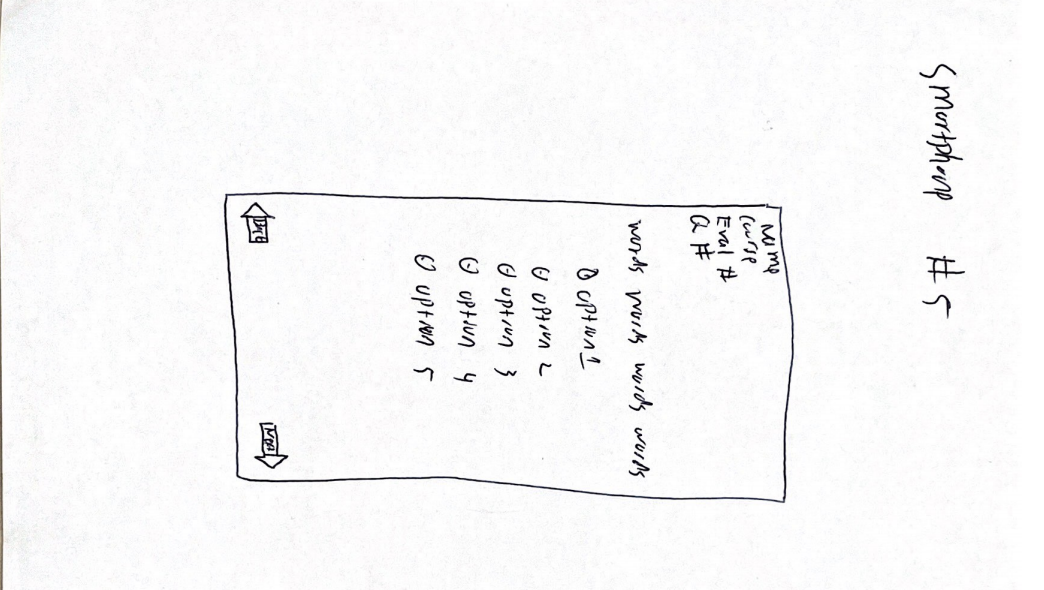 Smartphone #5
Name
Course
Eval #
Q #
words words words words
option 1
option 2
option 3
option 4
option 5
Back
Next